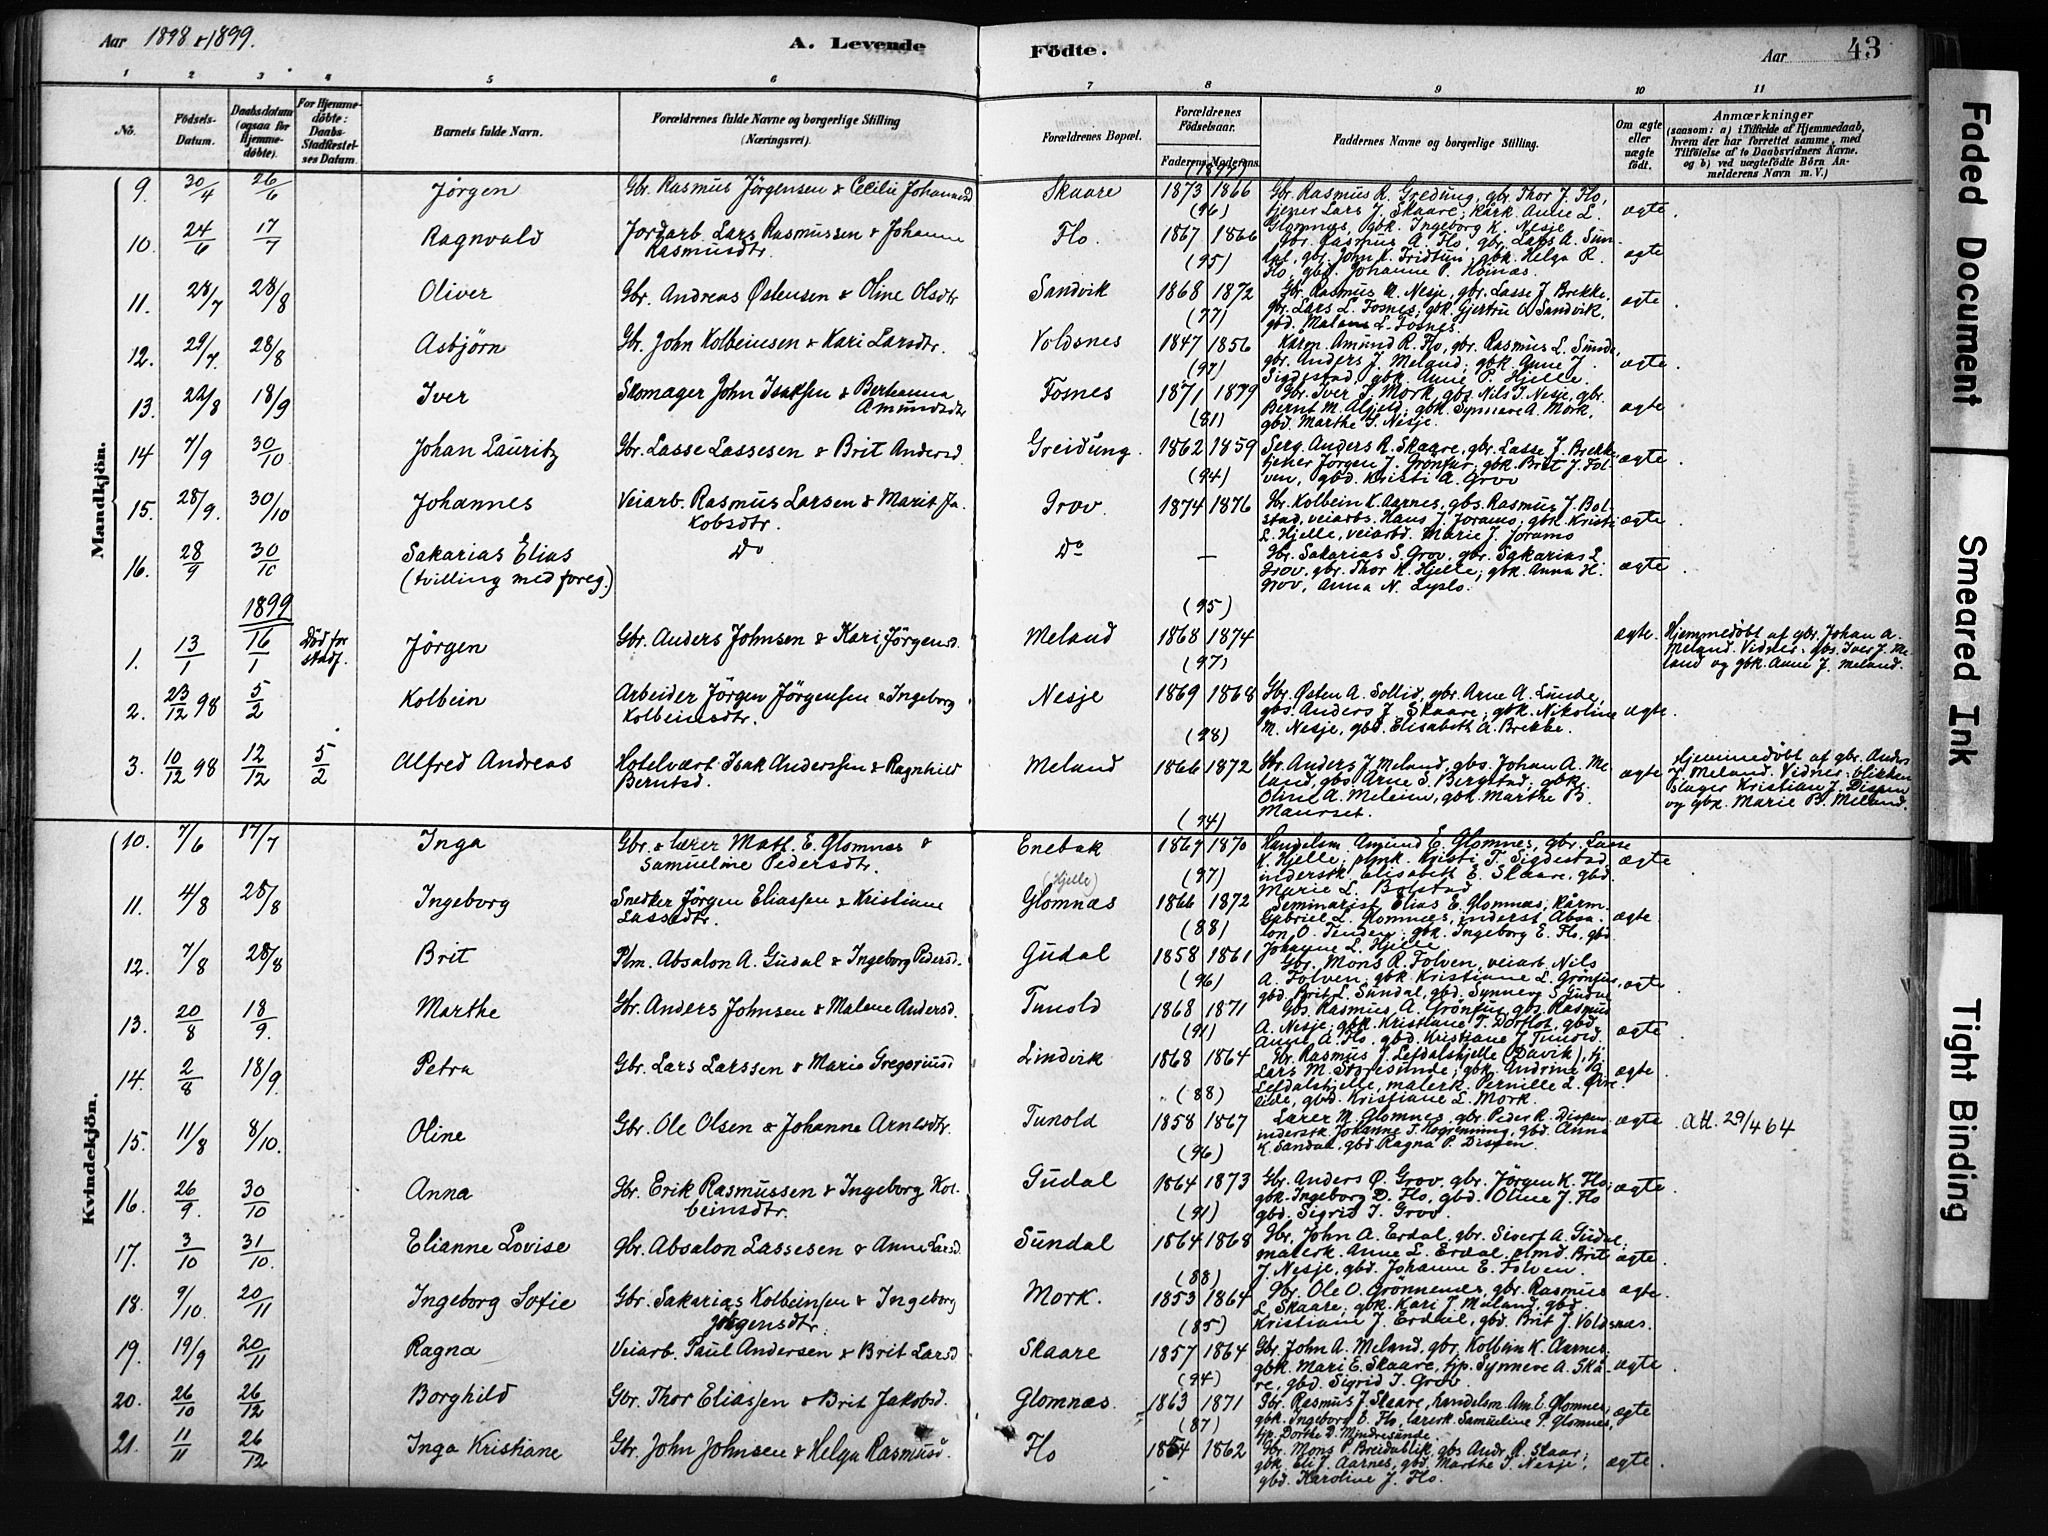 Aar 1898 & 1899.
A. Levende Födte.
Aar 43
1 2 3 4 5 6 7 8 9 10 11
No.
Födsels-Datum.
Daabsdatum (ogsaa for Hjemme-döbte).
For Hjemme-döbte: Daabs-Stadfæstel-ses Datum.
Barnets fulde Navn.
Forældrenes fulde Navne og borgerlige Stilling (Næringsvei).
Forældrenes Bopæl.
Forældrenes Födselsaar.
Faderens. Moderens.
Faddernes Navne og borgerlige Stilling.
Om ægte eller uægte födt.
Anmærkninger
(saasom: a) i Tilfælde af Hjemmedaab, hvem der har forrettet samme, med Tilföielse af to Daabsvidners Navne. og b) ved uægtefödte Börn Anmelderens Navn m. V.)
Mandkjön.
(1897)
9. 30/4 26/6 Jörgen Gbr. Rasmus Jörgensen & Cecilie Johannesd Skaare 1873 1866 Gbr. Rasmus R. Gredung, gbr. Thor J. Flo, tjener Lars J. Skaare; kark. Anne L. Glomnes, gbk. Ingeborg K. Nesje ægte.
(96)
10. 24/6 17/7 Ragnvald Jordarb. Lars Rasmussen & Johanne Rasmusdtr. Flo. 1867 1866 Gbr. Rasmus A. Flo, gbr. Lars A. Sundal, gbr. John K. Tridtun; gbk. Helga R. Flo, gbd. Johanne P. Höinæs. ægte
(95)
11. 28/7 28/8 Oliver Gbr. Andreas Østensen & Oline Olsdtr Sandvik 1868 1872 Gbr. Rasmus R. Nesje, gbr. Lasse J. Brekke, gbr. Lars L. Fosnes; gbk. Gjertru O. Sandvik, gbd. Malene L. Fosnes. ægte.
(77)
12. 29/7 28/8 Asbjörn Gbr. John Kolbeinsen & Kari Larsdtr. Voldsnes 1847 1856 Karm. Amund R. Flo, gbr. Rasmus L. Sunde, gbr. Anders J. Meland; gbk. Anne J. Sigdestad, gbk. Anne P. Hjelle. ægte.
(97)
13. 22/8 18/9 Iver Skomager John Isaksen & Berteanna Amundsdtr Fosnes 1871 1879 Gbr. Iver J. Mork, gbs. Nils J. Nesje, gbr. Bernt M. Aljeld; gbk. Synneve A. Mork, gbd. Marthe J. Nesje. ægte
(81)
14 7/9 30/10 Johan Lauritz Gbr. Lasse Lassesen & Brit Andersd. Greidung. 1862 1859 Serg. Anders R. Skaare, gbr. Lasse J. Brekke, tjener Jörgen J. Grönfur; gbk. Brit J. Folven, gbd. Kristi A. Grov ægte.
(94)
15. 28/9. 30/10 Johannes Veiarb. Rasmus Larsen & Marit Jakobsdtr. Grov 1874 1876 Gbr. Kolbein K. Aarnes, gbs. Rasmus J. Bolstad, veiarbs. Hans J. Jorams; gbk. Kristi L. Hjelle, veiarbd. Marie J. Jorams ægte.
16. 28/9 30/10 Sakarias Elias (tvilling med foreg.) Do Do — Gbr. Sakarias S. Grov, gbr. Sakarias L. Grov, gbr. Thor K. Hjelle; gbk. Anna H. Grov, Anna N. Lyslo. ægte.
1899
(95)
1. 13/1 16/1 Död för stadf. Jörgen Gbr. Anders Johnsen & Kari Jörgensd. Meland 1868 1874 ægte. Hjemmedöbt af gbr. Johan A. Meland. Vidner: gbs. Iver J. Meland og gbk. Anne J. Meland.
(97)
2. 23/12 98 5/2 Kolbein Arbeider Jörgen Jörgensen & Ingeborg Kolbeinsdtr. Nesje 1869 1868 Gbr. Østen A. Sollid, gbr. Arne A. Lunde, gbs. Anders J. Skaare; gbk. Nikoline M. Nesje, gbd. Elisabeth A. Brekke. ægte.
(98)
3. 10/12 98 12/12 5/2 Alfred Andreas Hotelvært Isak Anderssen & Ragnhild Berntsd. Meland 1866 1872 Gbr. Anders J. Meland, gbs. Johan A. Meland, gbs. Arne S. Bergstad; gbk. Oline A. Meleim, gbk. Marthe B. Maurset. ægte Hjemmedöbt af gbr. Anders J. Meland. Vidner: blikkenslager Kristian J. Dispen og gbk. Marie B. Meland.
Kvindekjön.
(94)
10. 7/6 17/7 Inga Gbr. & lærer Matt. E. Glomnes & Samueline Pedersdtr. Enebak 1867 1870 Handelsm. Amund E. Glomnes, gbr. Lasse K. Hjelle; plmk. Kristi T. Sigdestad, inderstk. Elisabeth E. Skaare, gbd. Marie L. Bolstad ægte
(97)
11. 4/8 28/8 Ingeborg Snedker Jörgen Eliassen & Kristiane Lassedtr. (Hjelle) Glomnæs 1866 1872 Seminarist Elias E. Glomnes, Karm. Gabriel L. Glomnes, inderst Absalon O. Tenden; gbk. Ingeborg E. Flo, gbd. Johanne L. Hjelle ægte
(88)
12. 7/8 28/8 Brit Plm. Absalon A. Gudal & Ingeborg Pedersd. Gudal 1858 1861 Gbr. Mons R. Folven, veiarb. Nils A. Folven; gbk. Kristiane L. Grönfur, gbd. Brit L. Sundal, gbd. Synneve S. Gudal ægte
(96)
13. 20/8 18/9. Marthe Gbr. Anders Johnsen & Malene Andersd. Tunold 1868 1871 Gbs. Rasmus A. Grönfur, gbs. Rasmus A. Nesje; gbk. Kristiane T. Dorflot, gbd. Anne A. Flo, gbd. Kristiane J. Tunold. ægte
(91)
14. 2/8 18/9. Petra Gbr. Lars Larssen & Marie Gregoriusd Lindvik 1868 1864 Gbr. Rasmus J. Lefdalshjelle (Davik), tj. Lars M. Storesunde; gbk. Andrine A. Lefdalshjelle, malerk. Pernille L. Øvrelide, gbd. Kristiane L. Mork. ægte.
(88)
15. 11/8 8/10. Oline Gbr. Ole Olsen & Johanne Arnesdtr. Tunold 1858 1867 Lærer M. Glomnes, gbr. Peder R. Dispen, inderstk. Johanne J. Høgrenning, gbd. Anna K. Sandal, gbd. Ragna P. Dispen ægte Att. 29/4 64
(96)
16. 26/9. 30/10 Anna Gbr. Erik Rasmussen & Ingeborg Kolbeinsdtr. Gudal 1864 1873 Gbr. Anders Ø. Grov, gbr. Jörgen K. Flo; gbk. Ingeborg D. Flo, gbd. Oline J. Flo gbd. Sigrid I. Grov. ægte.
(91)
17. 3/10 31/10. Elianne Lovise Gbr. Absalon Lassesen & Anne Larsd. Sundal 1864 1868 Gbr. John A. Erdal, gbr. Sivert A. Gudal; malerk. Anne L. Erdal, plmd. Brite J. Nesje, gbd. Johanne E. Folven. ægte.
(88)
18. 9/10. 20/11 Ingeborg Sofie Gbr. Sakarias Kolbeinsen & Ingeborg Jörgensdtr. Mork. 1853 1864 Gbr. Ole O. Grönnenes, gbr. Rasmus L. Skaare; gbk. Kari J. Meland, gbd. Kristiane J. Erdal, gbd. Brit J. Voldsnæs. ægte.
(85)
19. 19/9 20/11 Ragna Veiarb. Paul Andersen & Brit Larsd Skaare 1857 1864 Gbr. John A. Meland, gbr. Kolbein K. Aarnes; gbk. Mari E. Skaare, tjp. Synneve A. Skåre, gbd. Sigrid I. Grov ægte.
(94)
20. 26/10 26/12 Borghild Gbr. Thor Eliassen & Brit Jakobsd. Glomnæs. 1863 1871 Gbr. Rasmus J. Skaare, handelsm. Am. E. Glomnes; gbk. Ingeborg E. Flo, lærerk. Samueline P. Glomnes, tjp. Dorthe D. Mindresunde. ægte
(87)
21. 11/11 26/12 Inga Kristiane Gbr. John Johnsen & Helga Rasmusd. Flo 1854 1862 Gbr. Mons P. Breidablik, gbs. Andr. R. Skaar; gbk. Eli J. Aarnes, gbd. Marthe J. Nesje, gbd. Karoline J. Flo. ægte.
Faded Document
Smeared Ink
Tight Binding